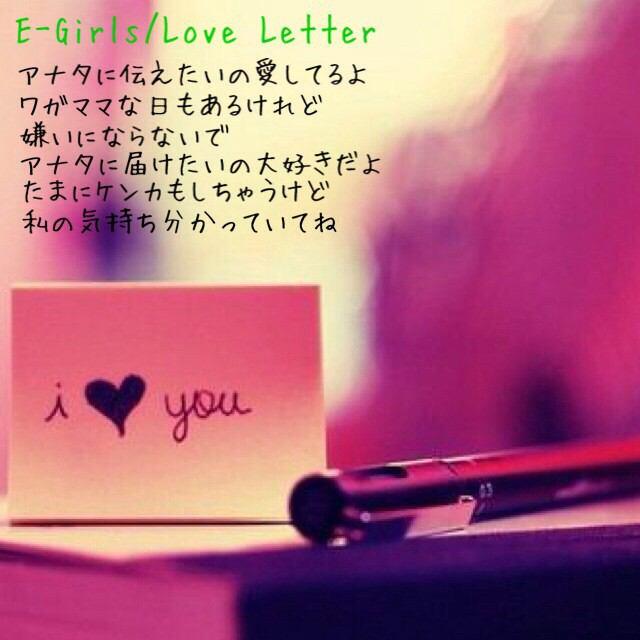 E-Girls/Love Letter
アナタに伝えたいの愛してるよ
ワガママな日もあるけれど
嫌いにならないで
アナタに届けたいの大好きだよ
たまにケンカもしちゃうけど
私の気持ち分かっていてね
i ♥ you
0.5